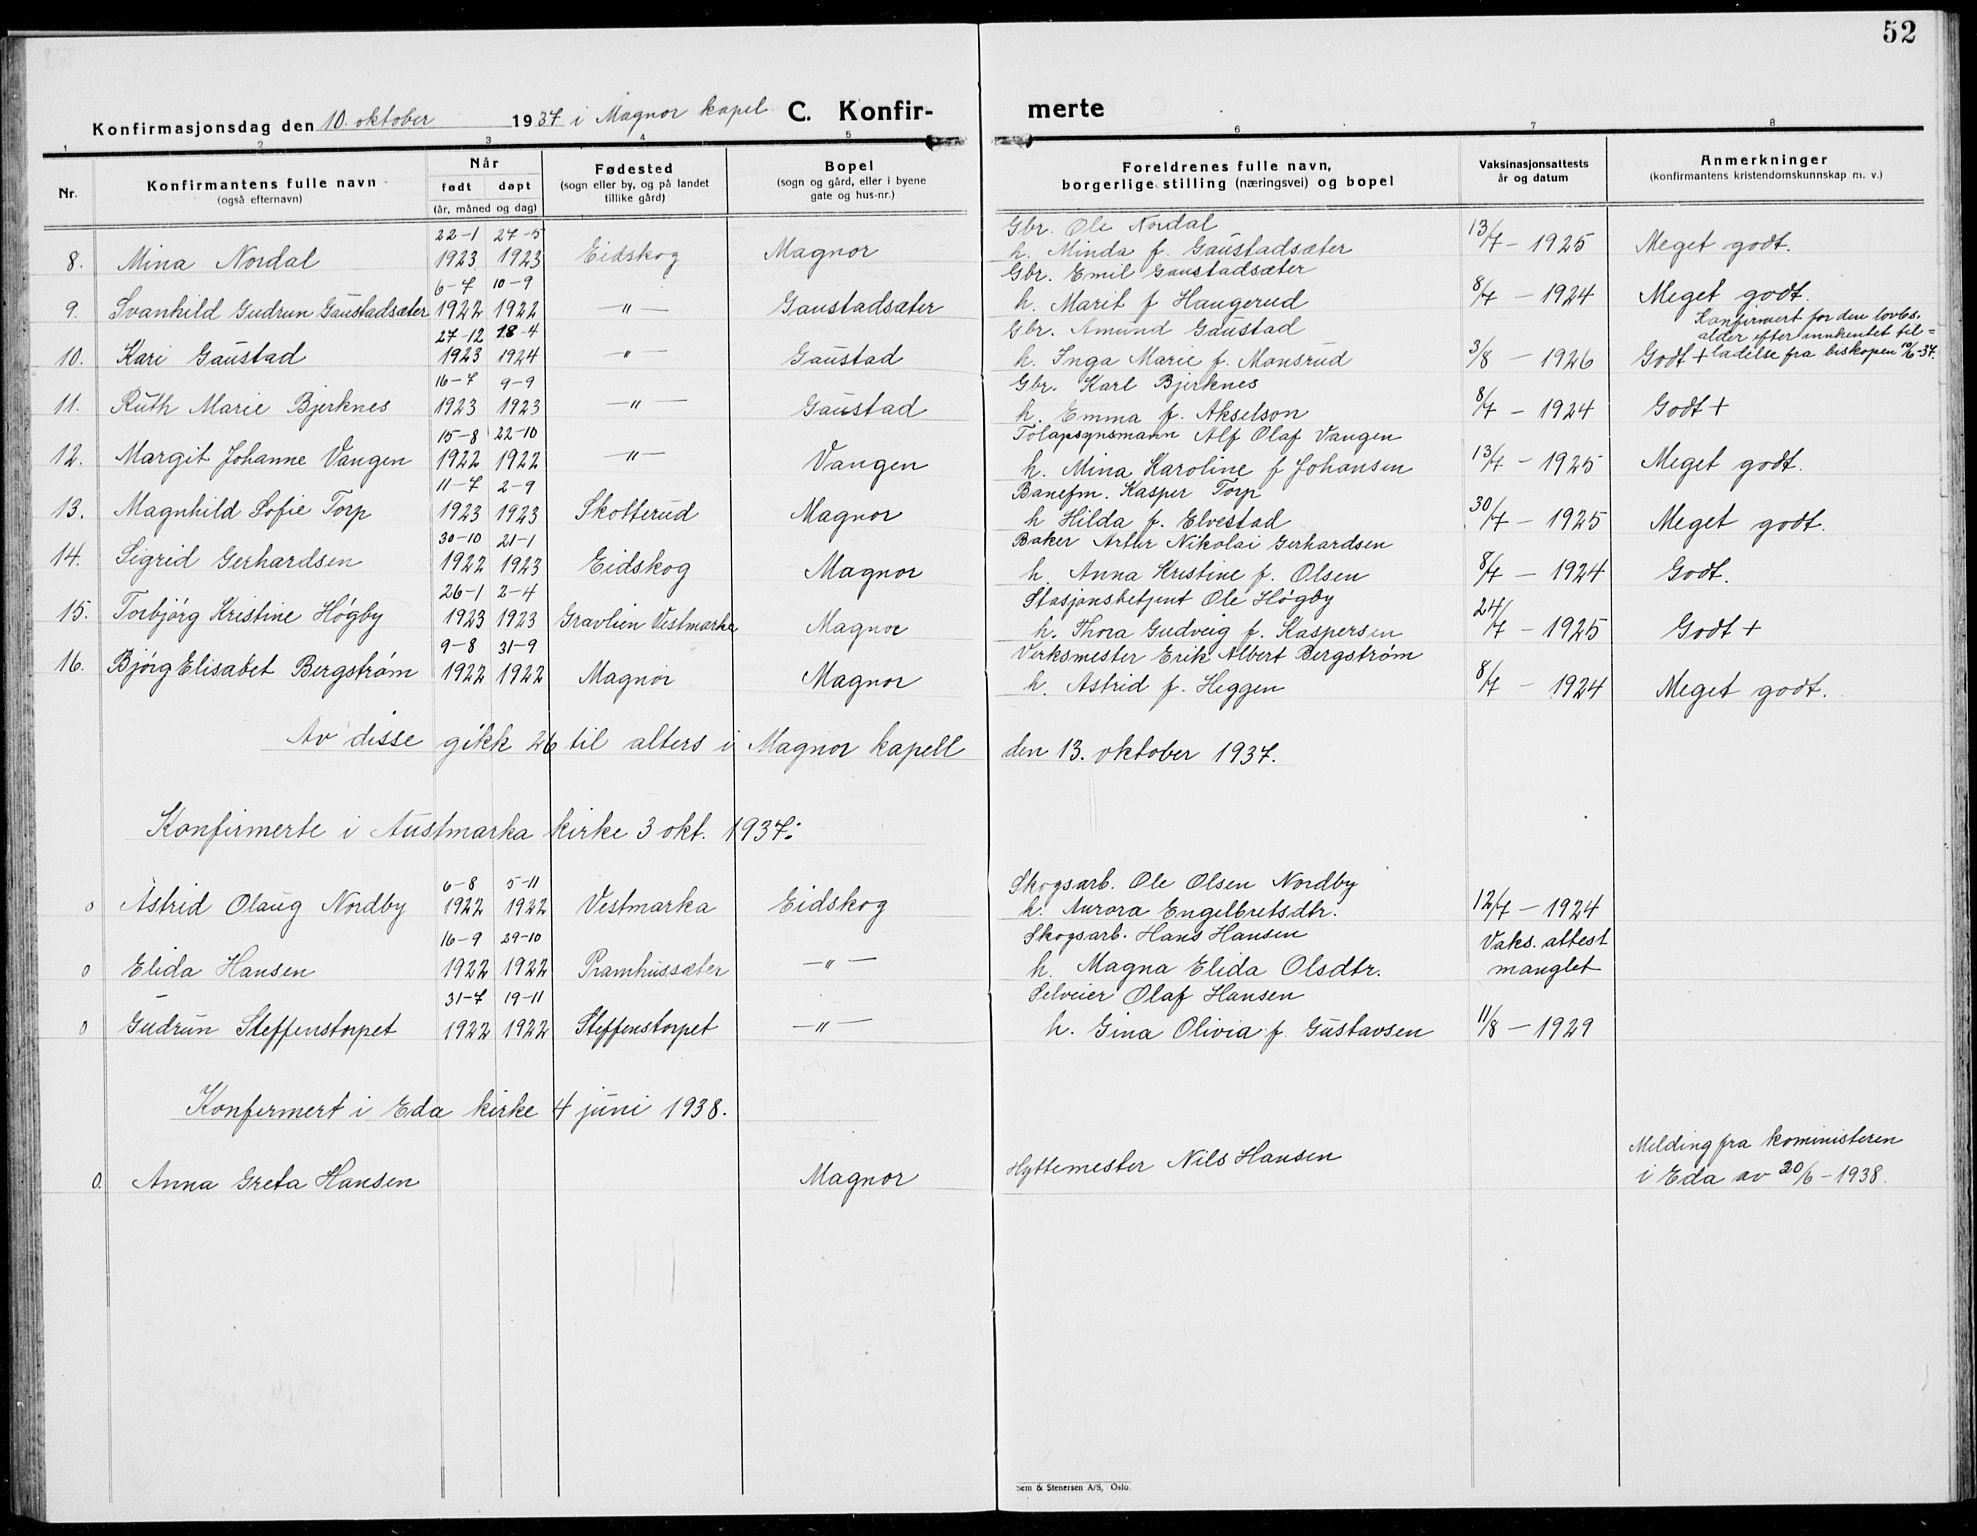 52
Konfirmasjonsdag den 10. oktober 1937 i Magnor kapel C. Konfirmerte
1 2 3 4 5 6 7 8
Nr. Konfirmantens fulle navn (også efternavn) Når født døpt (år, måned og dag) Fødested (sogn eller by, og på landet tillike gård) Bopel (sogn og gård, eller i byene gate og hus-nr.) Foreldrenes fulle navn, borgerlige stilling (næringsvei) og bopel Vaksinasjonsattests år og datum Anmerkninger (konfirmantens kristendomskunnskap m. v.)
22-1 27-5 Gbr. Ole Nordal
8. Mina Nordal 1923 1923 Eidskog Magnor h. Minda f. Gaustadsæter 13/7 - 1925 Meget godt.
6-7 10-9 Gbr. Emil Gaustadsæter
9. Svanhild Gudrun Gaustadsæter 1922 1922 —"— Gaustadsæter h. Marit f Haugerud 8/7 - 1924 Meget godt.
27-12 18-4 Gbr. Amund Gaustad Konfirmert for den lovbs. alder efter innhentet til=
10. Kari Gaustad 1923 1924 —"— Gaustad h. Inga Marie f. Monsrud 3/8 - 1926 Godt + ladelse fra biskopen 10/6-37.
16-7 9-9 Gbr. Karl Bjerknes
11. Ruth Marie Bjerknes 1923 1923 —"— Gaustad h. Emma f. Akselson 8/7 - 1924 Godt +
15-8 22-10 Tolopsynsmann Alf Olaf Vangen
12. Margit Johanne Vangen 1922 1922 —"— Vangen h. Mina Karoline f Johansen 13/7 - 1925 Meget godt.
11-7 2-9 Banefm. Kasper Torp
13. Magnhild Sofie Torp 1923 1923 Skotterud Magnor h Hilda f. Elvestad 30/7 - 1925 Meget godt.
30-10 21-1 Baker Artur Nikolai Gerhardsen
14. Sigrid Gerhardsen 1922 1923 Eidskog Magnor h. Anna Kristine f. Olsen 8/7 - 1924 Godt.
26-1 2-4 Stasjonsbetjent Ole Høgby
15. Torbjørg Kristine Høgby 1923 1923 Gravlien Vestmarka Magnor h. Thora Gudveig f. Kaspersen 24/7 - 1925 Godt +
9-8 31-9 Verksmester Erik Albert Bergstrøm
16. Bjørg Elisabet Bergstrøm 1922 1922 Magnor Magnor h. Astrid f. Heggen 8/7 - 1924 Meget godt.
Av disse gikk 26 til alters i Magnor kapell den 13. oktober 1937.
Konfirmerte i Austmarka kirke 3 okt. 1937:
6-8 5-11 Skogsarb. Ole Olsen Nordby
0 Astrid Olaug Nordby 1922 1922 Vestmarka Eidskog h. Aurora Engelbretsdtr. 12/7 - 1924
16-9 29-10 Skogsarb. Hans Hansen Vaks. attest
0 Elida Hansen 1922 1922 Pramhussæter —"— h. Magna Elida Olsdtr. manglet
31-7 19-11 Selveier Olaf Hansen
0 Gudrun Steffenstorpet 1922 1922 Steffenstorpet —"— h. Gina Olivia f. Gustavsen 11/8 - 1929
Konfirmert i Eda kirke 4 juni 1938.
Melding fra koministeren
0. Anna Greta Hansen Magnor Hyttemester Nils Hansen i Eda av 20/6 - 1938.
Sem & Stenersen A/S, Oslo.